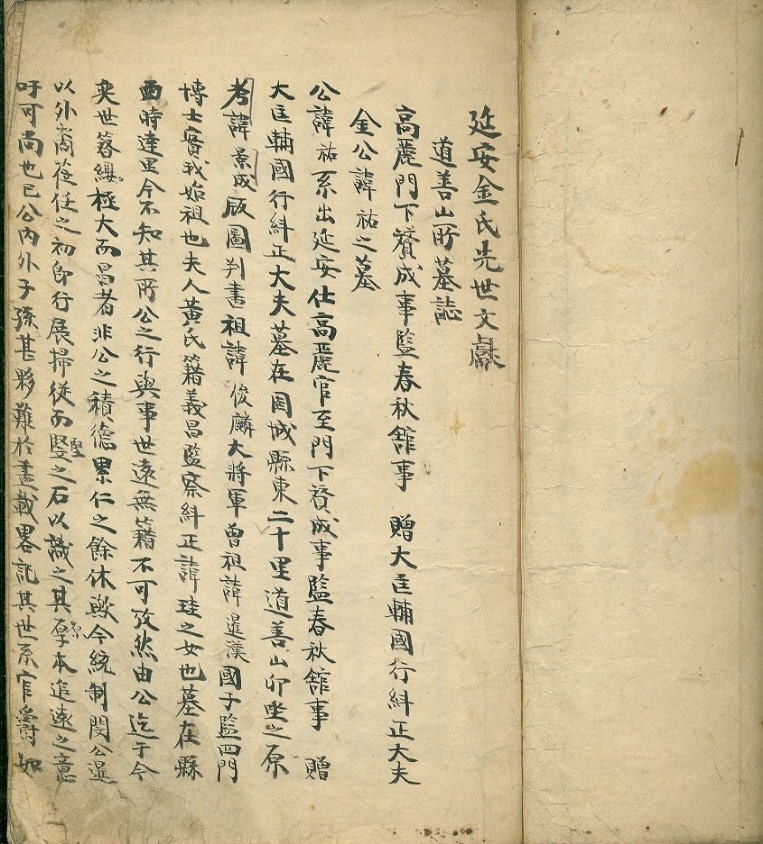 延安金氏先世文獻
道善山所墓誌
高麗門下贊成事監春秋舘事 贈大匡輔國行糾正大夫
金公諱祐之墓
公諱祐系出延安仕高麗官至門下贊成事監春秋舘事 贈
大匡輔國行糾正大夫墓在固城縣東二十里道善山卯坐之原
考諱景成版圖判書祖諱俊麟大將軍曾祖諱暹漢國子監四門
博士寔我始祖也夫人黃氏籍義昌監察糾正諱珪之女也墓在縣
西時達里今不知其所公之行與事世遠無籍不可攷然由公迄于今
奕世簪纓極大而昌者非公之積德累仁之餘休歟今統制閔公暹
以外裔莅任之初卽行展掃從而竪之石以識之其厚本追遠之意
吁可尚也已公內外子孫甚夥難於盡載畧記其世系官爵如